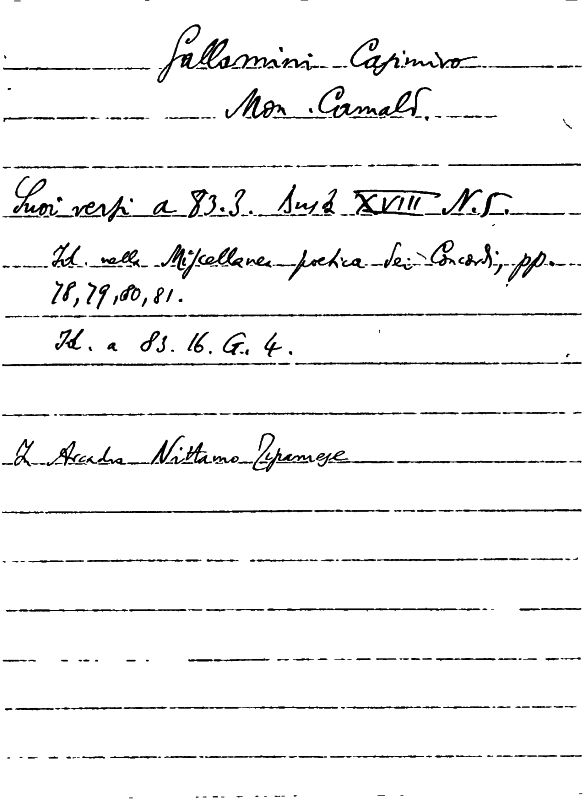 Gallamini Casimiro
Mon. Camald.
Suoi versi a 83.3. Busta XVIII N.5.
Id. nella Miscellanea poetica dei Concordi, pp.
78, 79, 80, 81.
Id. a 83. 16. G. 4.
In Arcadia Nittamo